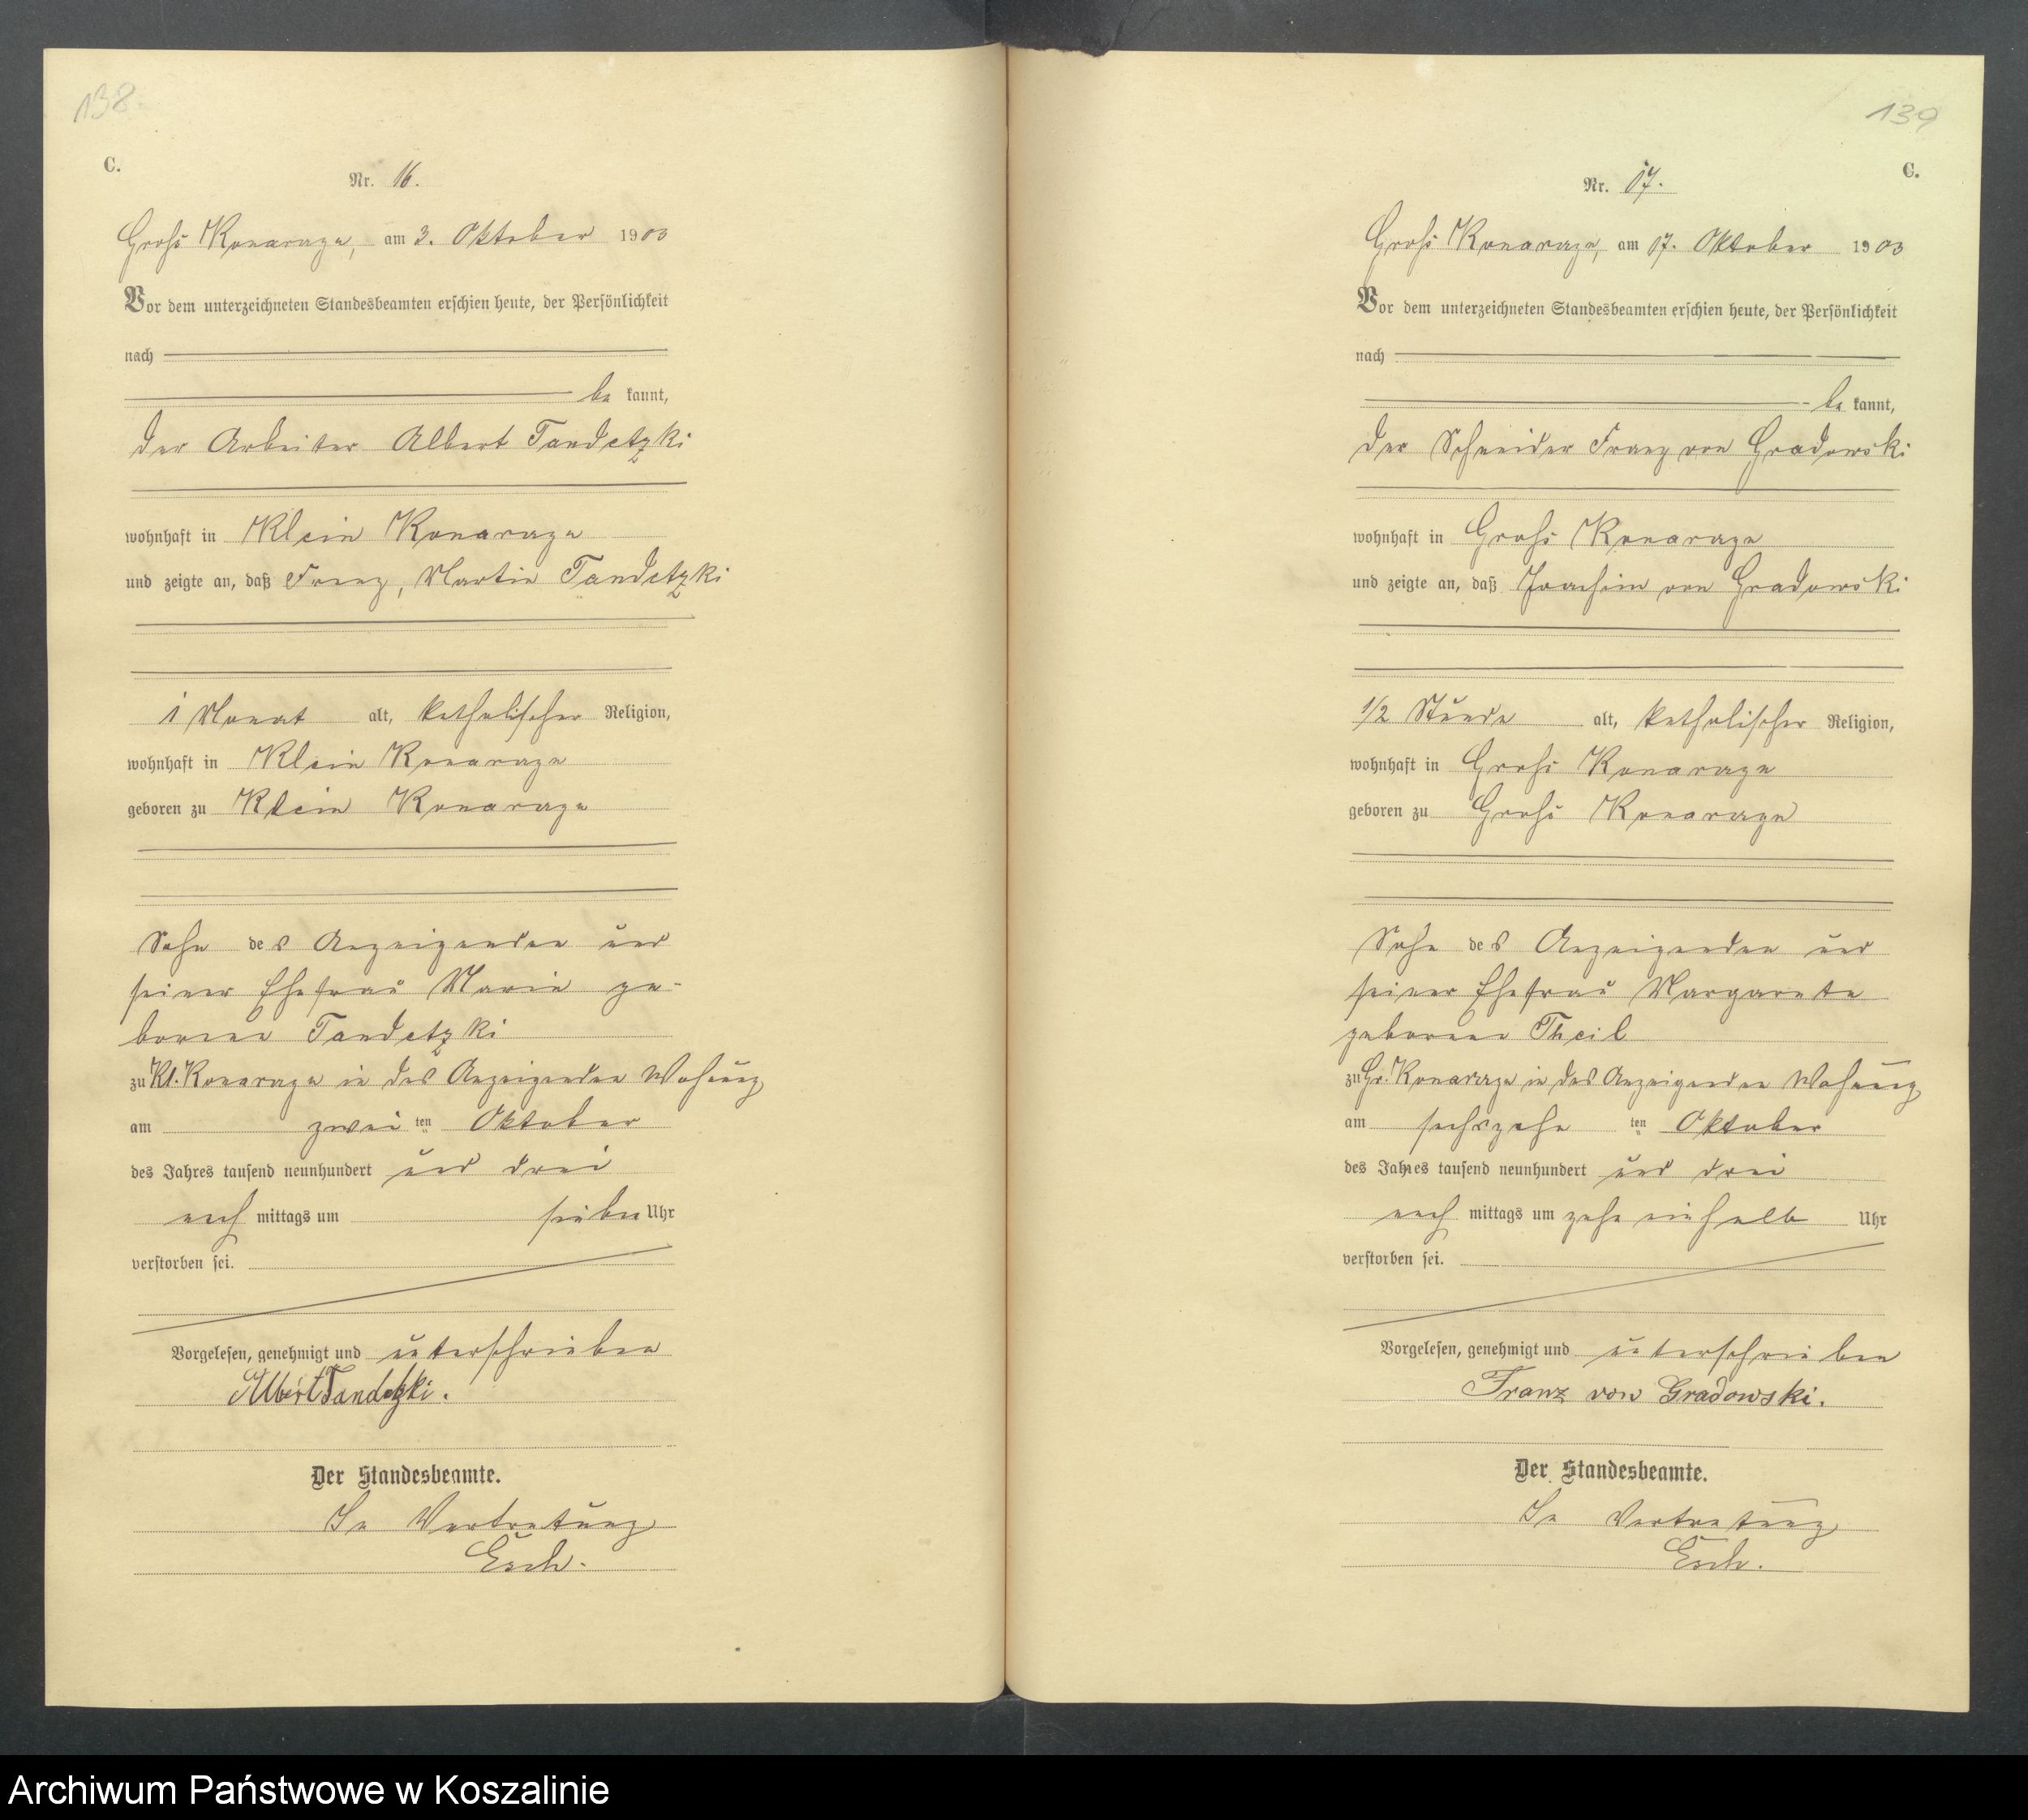 138
C.
Nr. 16.
Groß Konarzyn, am 3. Oktober 1903
Vor dem unterzeichneten Standesbeamten erschien heute, der Persönlichkeit
nach
be kannt,
der Arbeiter Albert Tandetzki
wohnhaft in Klein Konarzyn
und zeigte an, daß Franz, Martin Tandetzki
1 Monat alt, katholischer Religion,
wohnhaft in Klein Konarzyn
geboren zu Klein Konarzyn
Sohn des Anzeigenden und
seiner Ehefrau Marie ge-
borene Tandetzki
zu Kl. Konarzyn in des Anzeigenden Wohnung
am zwei ten Oktober
des Jahres tausend neunhundert und drei
nach mittags um sieben Uhr
verstorben sei.
Vorgelesen, genehmigt und unterschrieben
Albert Tandetzki.
Der Standesbeamte.
In Vertretung
Esch.
139
C.
Nr. 17.
Groß Konarzyn, am 17. Oktober 1903
Vor dem unterzeichneten Standesbeamten erschien heute, der Persönlichkeit
nach
be kannt,
der Schneider Franz von Gradowski
wohnhaft in Groß Konarzyn
und zeigte an, daß Joachim von Gradowski
1/2 Stunde alt, katholischer Religion,
wohnhaft in Groß Konarzyn
geboren zu Groß Konarzyn
Sohn des Anzeigenden und
seiner Ehefrau Margarete
geborene Theil
zu Gr. Konarzyn in des Anzeigenden Wohnung
am sechszehn ten Oktober
des Jahres tausend neunhundert und drei
nach mittags um zehn einhalb Uhr
verstorben sei.
Vorgelesen, genehmigt und unterschrieben
Franz von Gradowski.
Der Standesbeamte.
In Vertretung
Esch.
Archiwum Państwowe w Koszalinie